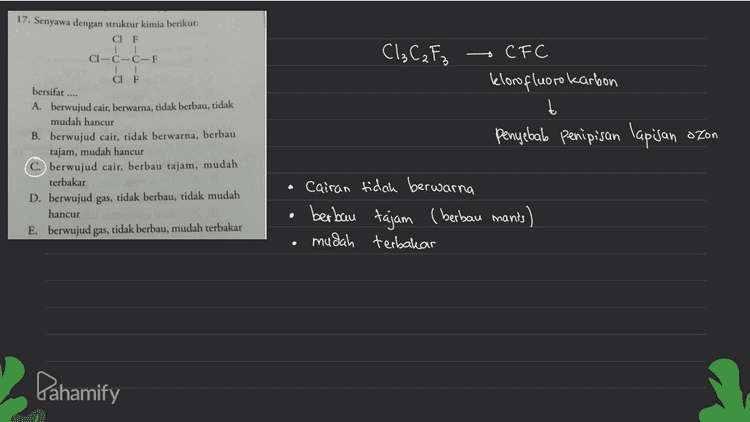 17. Senyawa dengan struktur kimia berikut:
Cl F
Cl—C—C—F
Cl F
bersifat ....
A. berwujud cair, berwarna, tidak berbau, tidak
mudah hancur
B. berwujud cair, tidak berwarna, berbau
tajam, mudah hancur
C. berwujud cair, berbau tajam, mudah
terbakar
D. berwujud gas, tidak berbau, tidak mudah
hancur
E. berwujud gas, tidak berbau, mudah terbakar
Cl₃C₂F₃ → CFC
klorofluorokarbon
↓
Penyebab penipisan lapisan ozon
• Cairan tidak berwarna
• berbau tajam (berbau manis)
• mudah terbakar
Pahamify